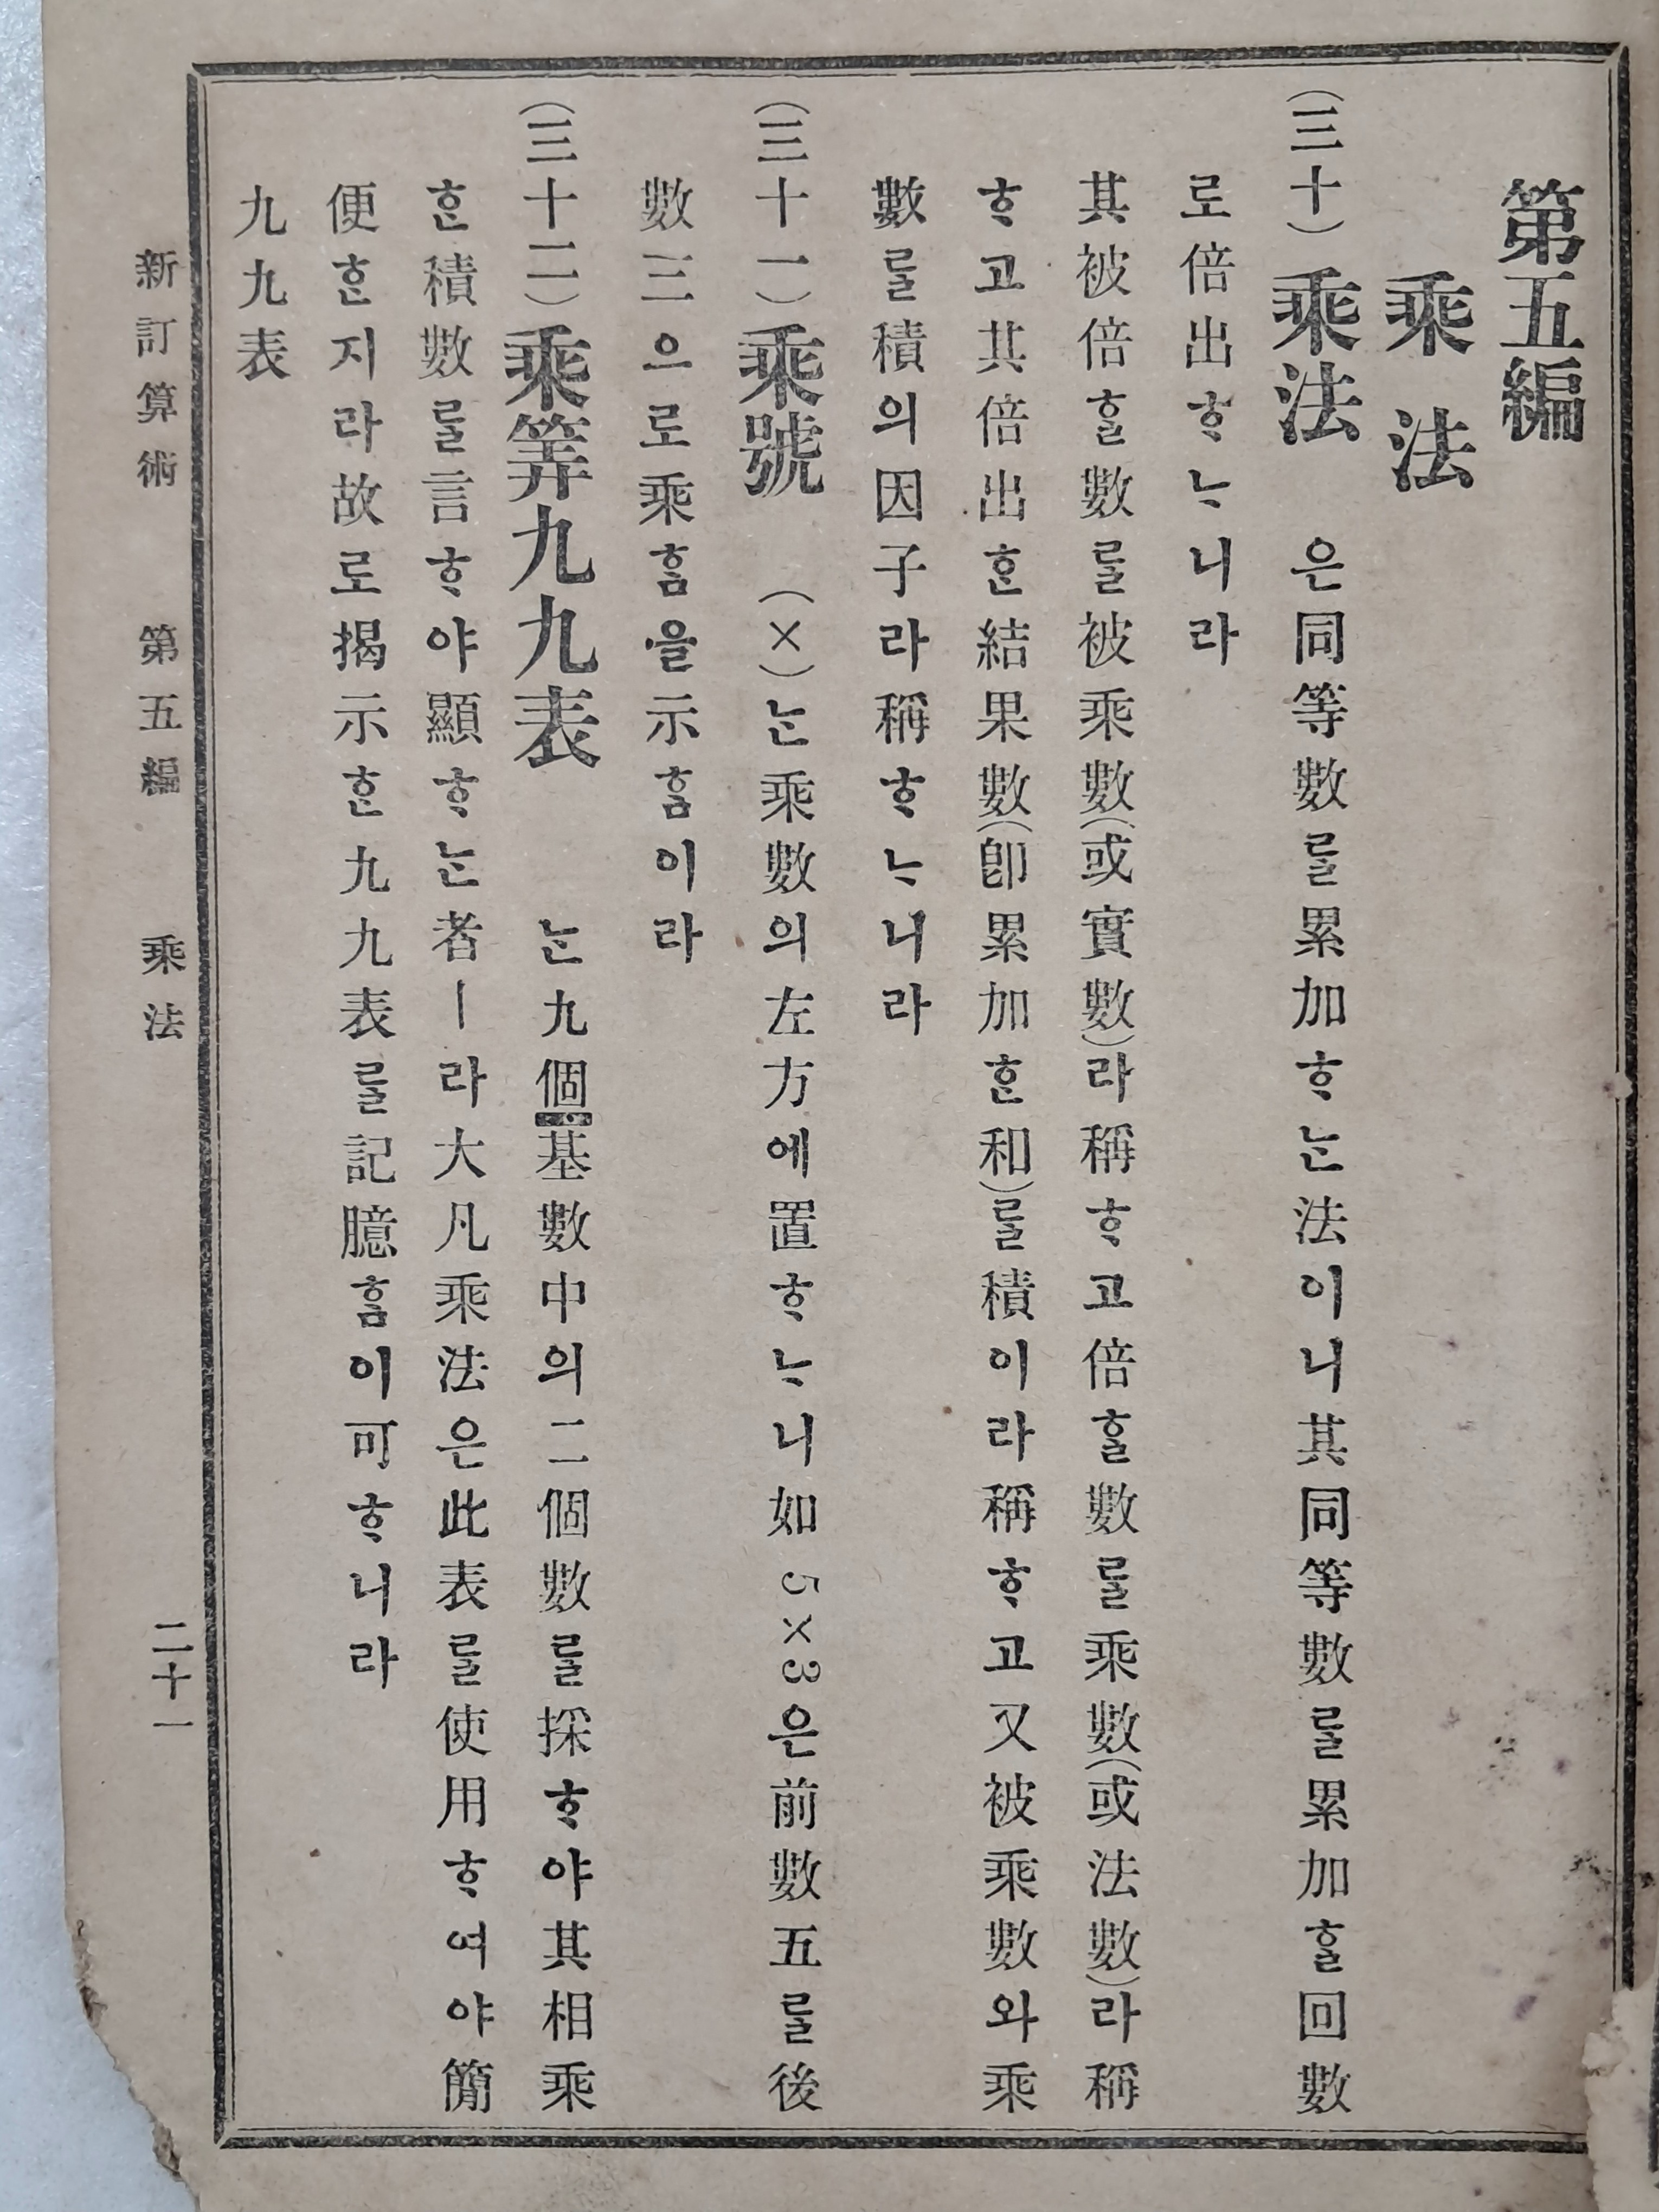 第五編
乘法
(三十)乘法 은同等數를累加ᄒᆞᄂᆞᆫ法이니其同等數를累加ᄒᆞᆯ回數
로倍出ᄒᆞᄂᆞ니라
其被倍ᄒᆞᆯ數를被乘數(或實數)라稱ᄒᆞ고倍ᄒᆞᆯ數를乘數(或法數)라稱
ᄒᆞ고其倍出ᄒᆞᆫ結果數(卽累加ᄒᆞᆫ和)를積이라稱ᄒᆞ고又被乘數와乘
數를積의因子라稱ᄒᆞᄂᆞ니라
(三十一)乘號 (×)ᄂᆞᆫ乘數의左方에置ᄒᆞᄂᆞ니如5×3은前數五를後
數三으로乘ᄒᆞᆷ을示ᄒᆞᆷ이라
(三十二)乘筭九九表 ᄂᆞᆫ九個基數中의二個數를採ᄒᆞ야其相乘
ᄒᆞᆫ積數를言ᄒᆞ야顯ᄒᆞᄂᆞᆫ者ㅣ라大凡乘法은此表를使用ᄒᆞ여야簡
便ᄒᆞᆫ지라故로揭示ᄒᆞᆫ九九表를記臆ᄒᆞᆷ이可ᄒᆞ니라
九九表
新訂算術 第五編 乘法 二十一